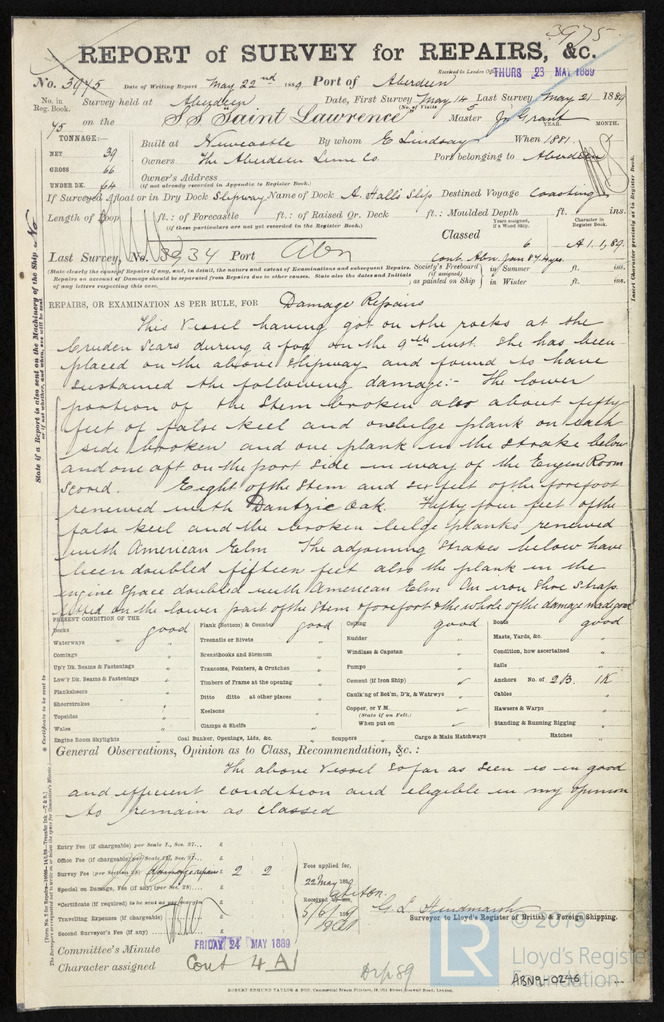 3975
REPORT of SURVEY for REPAIRS, &c.
Received in London Office THURS 23 MAY 1889
No. 3975 Date of Writing Report May 22nd 1889 Port of Aberdeen
No. in Reg. Book. Survey held at Aberdeen Date, First Survey May 14 Last Survey May 21 1889
(No. of Visits)
75 on the SS Saint Lawrence Master J. Grant
TONNAGE:—
YEAR. MONTH.
NET 39
GROSS 66
UNDER DK. 64
Built at Newcastle By whom E Lindsay When 1881
Owners The Aberdeen Lime Co Port belonging to Aberdeen
Owner's Address
(If not already recorded in Appendix to Register Book.)
If Surveyed Afloat or in Dry Dock Slipway Name of Dock A. Hall's Slip Destined Voyage Coasting
Length of Poop ft.: of Forecastle ft.: of Raised Qr. Deck ft.: Moulded Depth ft. ins.
(If these particulars are not yet recorded in the Register Book.)
Years assigned, if a Wood Ship.
Character in Register Book.
Classed 6 A.1.1,89.
Last Survey, No. 3934 Port Abn
Cont. Abn. Jan 87 4yrs.
(State clearly the cause of Repairs if any, and, in detail, the nature and extent of Examinations and subsequent Repairs.
Repairs on account of Damage should be separated from Repairs due to other causes. State also the dates and Initials
of any letters respecting this case.
Society's Freeboard (if assigned) as painted on Ship in Summer ft. ins.
in Winter ft. ins.
REPAIRS, OR EXAMINATION AS PER RULE, FOR Damage Repairs
This Vessel having got on the rocks at the
Cruden Scars during a fog on the 9th inst. She has been
placed on the above slipway and found to have
sustained the following damage:- The lower
portion of the Stem broken also about fifty
feet of false keel and one bulge plank on each
side broken and one plank in the strake below
and one aft on the port side in way of the Engine Room
scored. Eight of the stem and six feet of the forefoot
renewed with Dantzic Oak. Fifty four feet of the
false keel and the broken bulge planks renewed
with American Elm. The adjoining strakes below have
been doubled fifteen feet also the plank in the
engine space doubled with American Elm. An iron shoe straps
fitted on the lower part of the stem & forefoot & the whole of the damage made good
PRESENT CONDITION OF THE
Decks good
Waterways "
Comings "
Up'r Dk. Beams & Fastenings "
Low'r Dk. Beams & Fastenings "
Planksheers "
Sheerstrakes "
Topsides "
Wales "
Engine Room Skylights "
Plank (Bottom) & Counter good
Treenails or Rivets "
Breasthooks and Stemson "
Transoms, Pointers, & Crutches "
Timbers of Frame at the opening "
Ditto ditto at other places "
Keelsons "
Clamps & Shelfs "
Coal Bunker, Openings, Lids, &c. "
Ceiling good
Rudder "
Windlass & Capstan "
Pumps "
Cement (if Iron Ship)
Caulk'ng of Bot'm, D'k, & Watrwys
Copper, or Y M.
(State if on Felt.)
When put on
Scuppers "
Cargo & Main Hatchways "
Boats good
Masts, Yards, &c. "
Condition, how ascertained "
Sails "
Anchors No. of 2B. 1K
Cables "
Hawsers & Warps "
Standing & Running Rigging "
Hatches "
General Observations, Opinion as to Class, Recommendation, &c. :
The above Vessel so far as seen is in good
and efficient condition and eligible in my opinion
to remain as classed
Entry Fee (if chargeable) per Scale I., Sec. 27... £
Office Fee (if chargeable) per Scale II., Sec. 27... £
Survey Fee (per Section 28) Damage repairs £ 2 : 2
Special on Damage, Fee (if any) (per Sec. 28)... £
*Certificate (if required) to be sent as per margin £
Travelling Expenses (if chargeable) £
Second Surveyor's Fee (if any) £
Fees applied for,
22 May 1889
Received by me,
5/6/89
G L Hindmarsh
Surveyor to Lloyd's Register of British & Foreign Shipping.
Committee's Minute FRIDAY 24 MAY 1889
Character assigned Cont 4 A
Drp 89
ROBERT EDMUND TAYLOR & SON, Commercial Steam Printers
© 2019
LR
Lloyd's Register
Foundation
ABN9-0246
State if a Report is also sent on the Machinery of the Ship No
or if not, whether, and when, one will be sent
Insert Character of Ship precisely as in Register Book.
* Certificate to be sent to